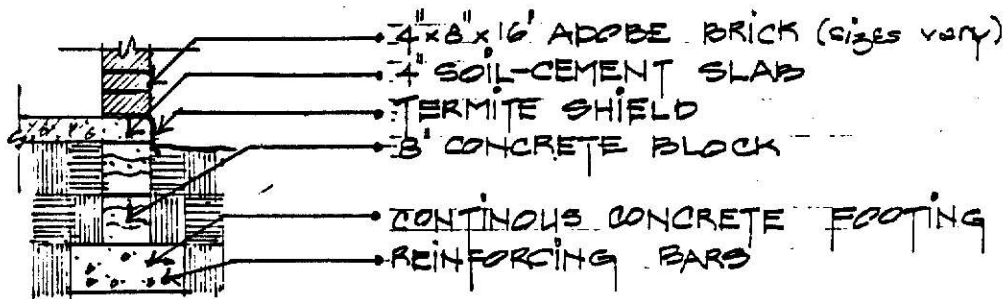 4"x8"x16" ADOBE BRICK (sizes vary)
4" SOIL-CEMENT SLAB
TERMITE SHIELD
8" CONCRETE BLOCK
CONTINOUS CONCRETE FOOTING
REINFORCING BARS